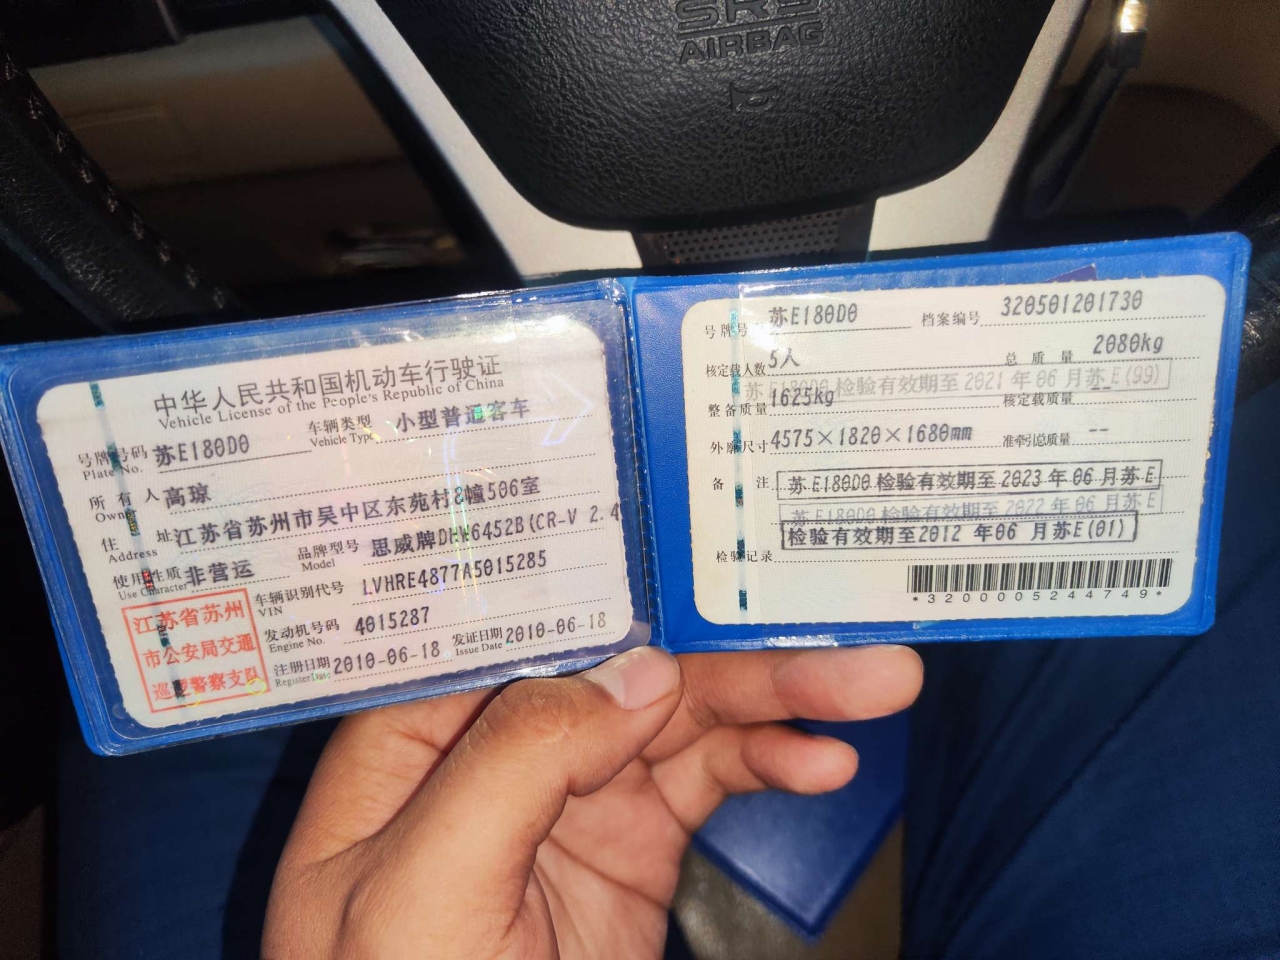 SRS
AIRBAG
中华人民共和国机动车行驶证
Vehicle License of the People's Republic of China
号牌号码 苏E180D0 车辆类型 小型普通客车
Plate No. Vehicle Type
所有人 高琼
Owner
住址 江苏省苏州市吴中区东苑村8幢506室
Address
使用性质 非营运 品牌型号 思威牌DHW6452B(CR-V 2.4
Use Character Model
江苏省苏州
市公安局交通
巡逻警察支队
车辆识别代号 LVHRE4877A5015285
VIN
发动机号码 4015287
Engine No.
注册日期 2010-06-18 发证日期 2010-06-18
Register Date Issue Date
号牌号 苏E180D0 档案编号 320501201730
核定载人数 5人 总质量 2080kg
苏E180D0 检验有效期至 2021 年 06 月苏E(99)
整备质量 1625kg 核定载质量 --
外廓尺寸 4575×1820×1680mm 准牵引总质量 --
备注 苏E180D0 检验有效期至 2023 年 06 月苏E
苏E180D0 检验有效期至 2022 年 06 月苏E
检验有效期至2012 年06 月苏E(01)
检验记录
*3200005244749*